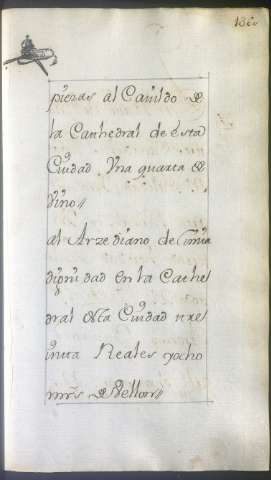 piezas al Cavildo de
la Cathedral de esta
Ciudad Vna quarta de
Vino
al Arzediano de
dignidad en la Cathe
dral desta Ciudad
Reales y ocho
mrs de Vellon